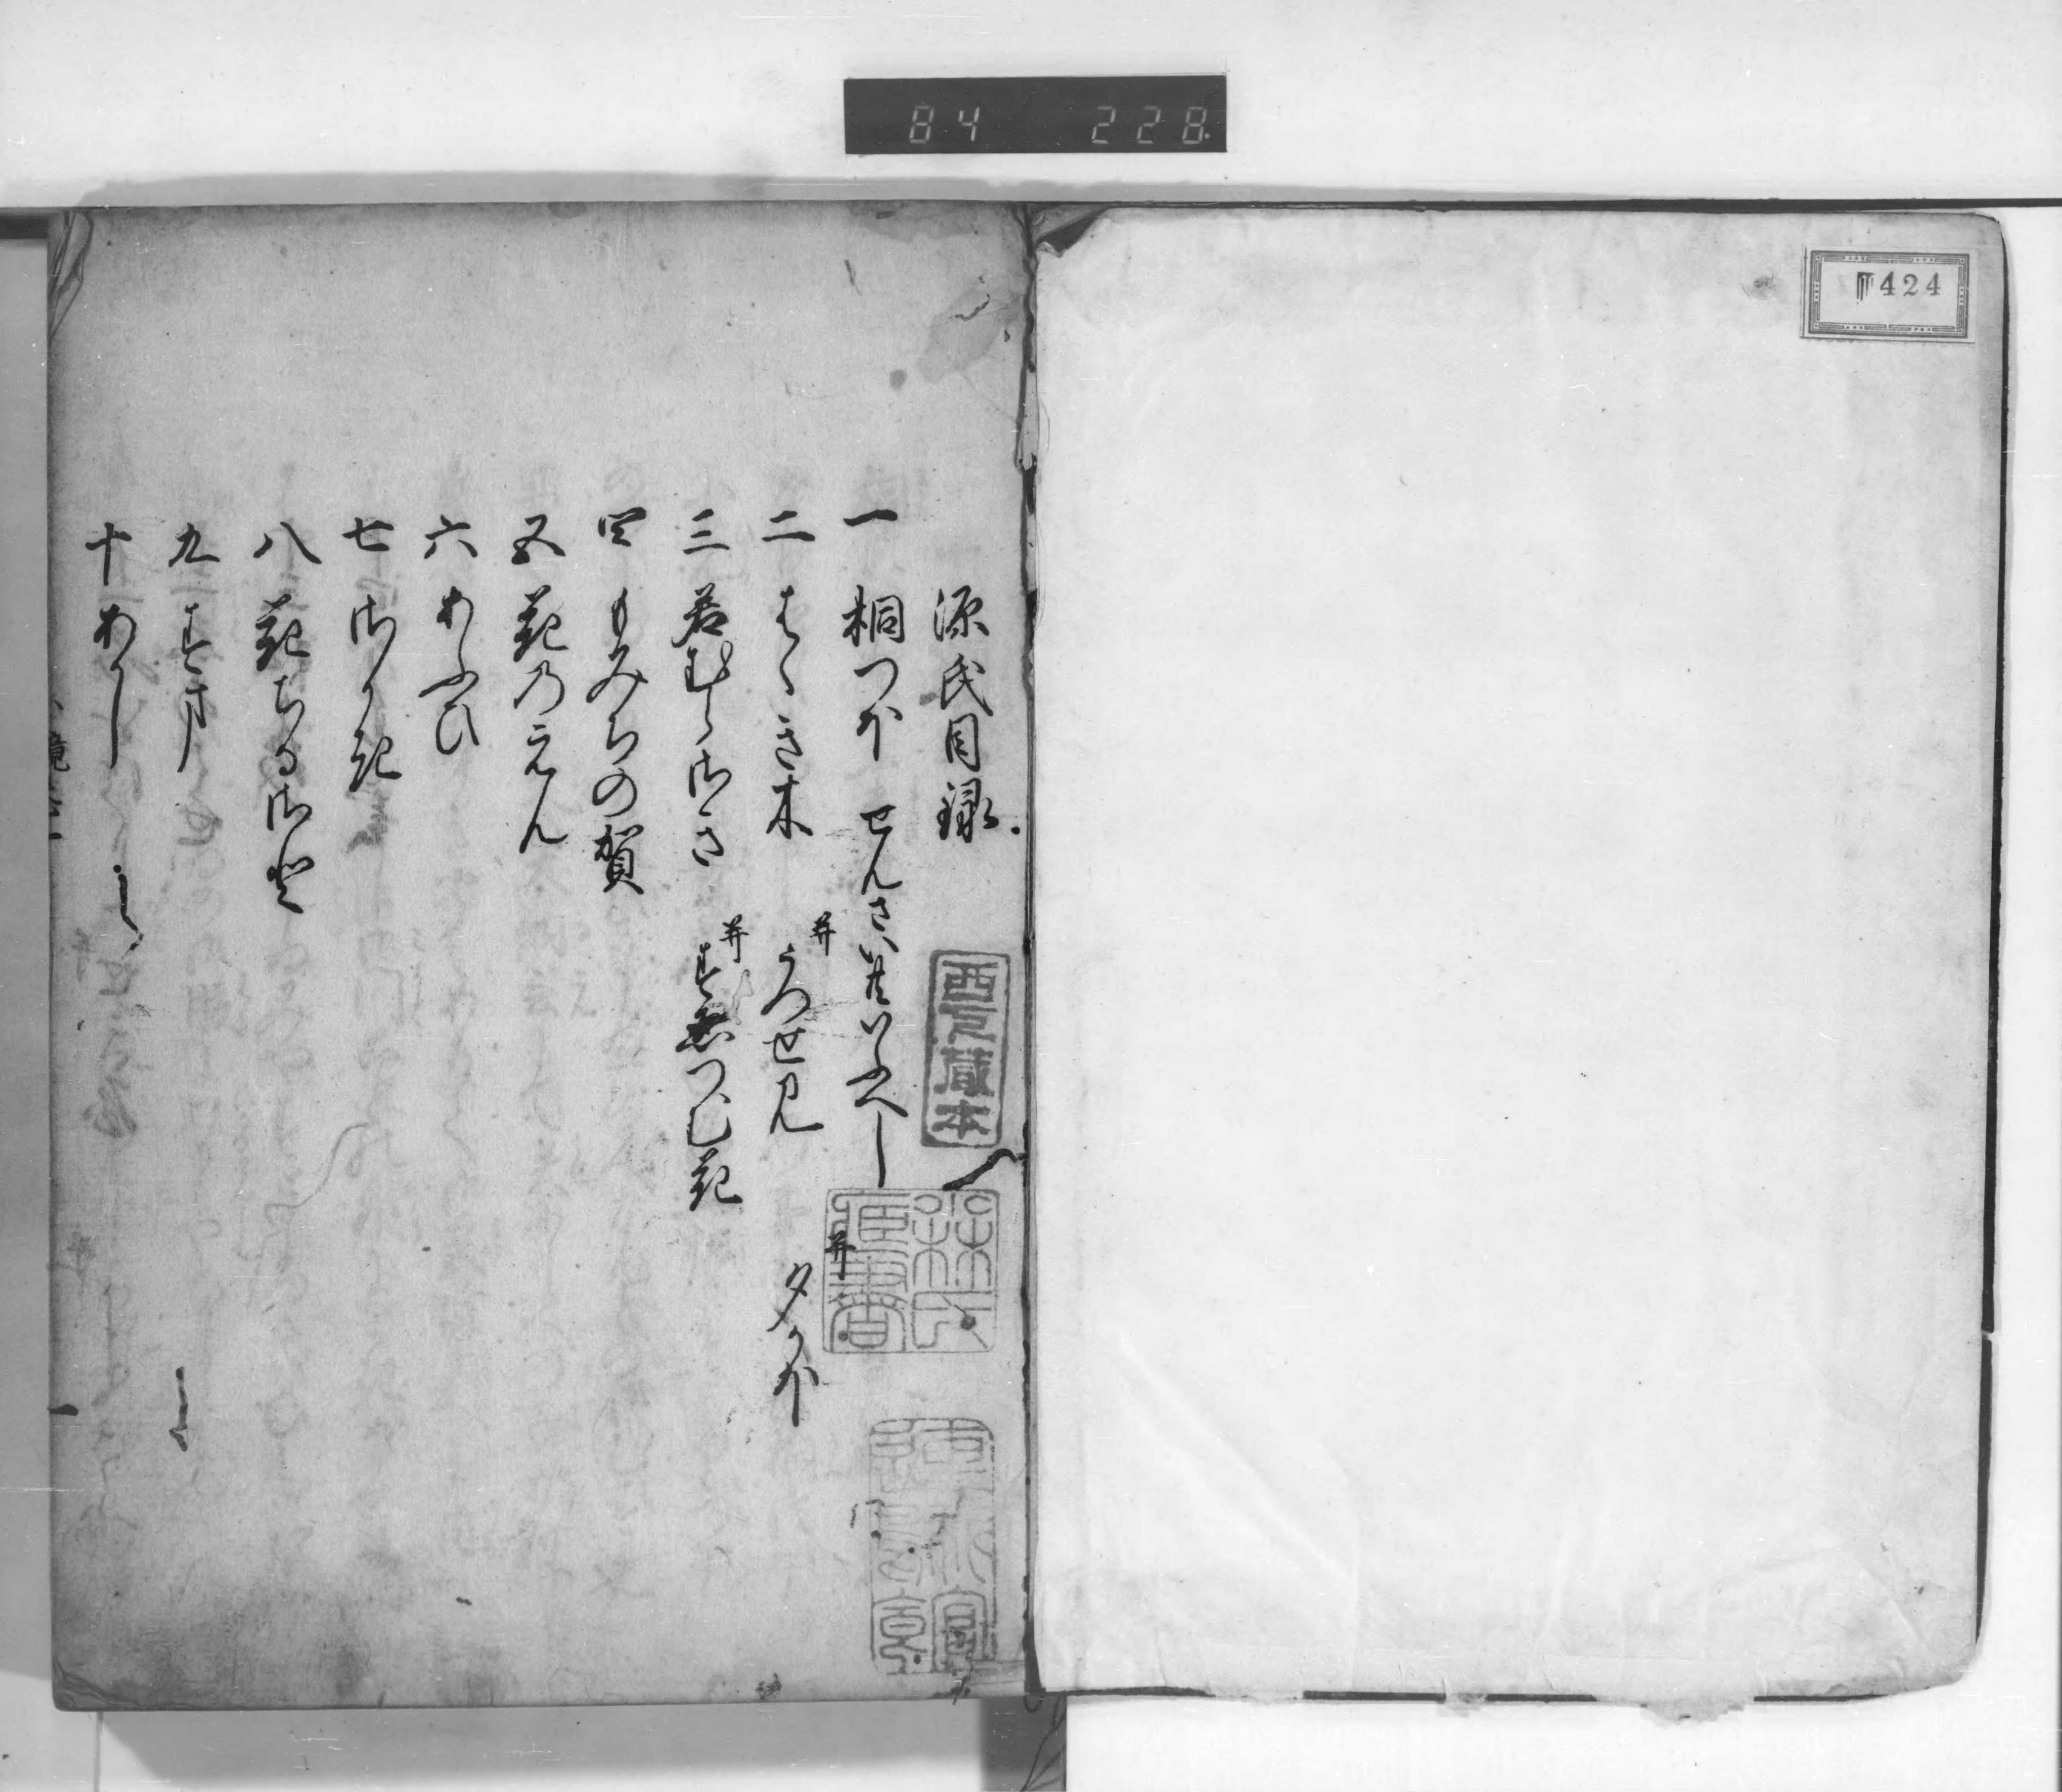 84 228
424
源氏目録
一 桐つほ せんさいまいふへし
二 はゝき木 并 うつせみ 并 夕かほ
三 若むらさき 并 すゑつむ花
四 もみちの賀
五 花のえん
六 あふひ
七 さか花
八 花ちるさと
九 すま
十 あかし
西荘蔵本